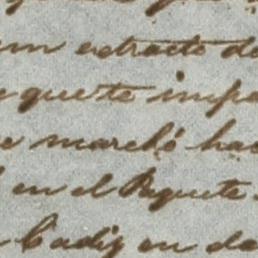 un extracto de
que te impo
marchó hac
en el Paquete
Cadiz en da